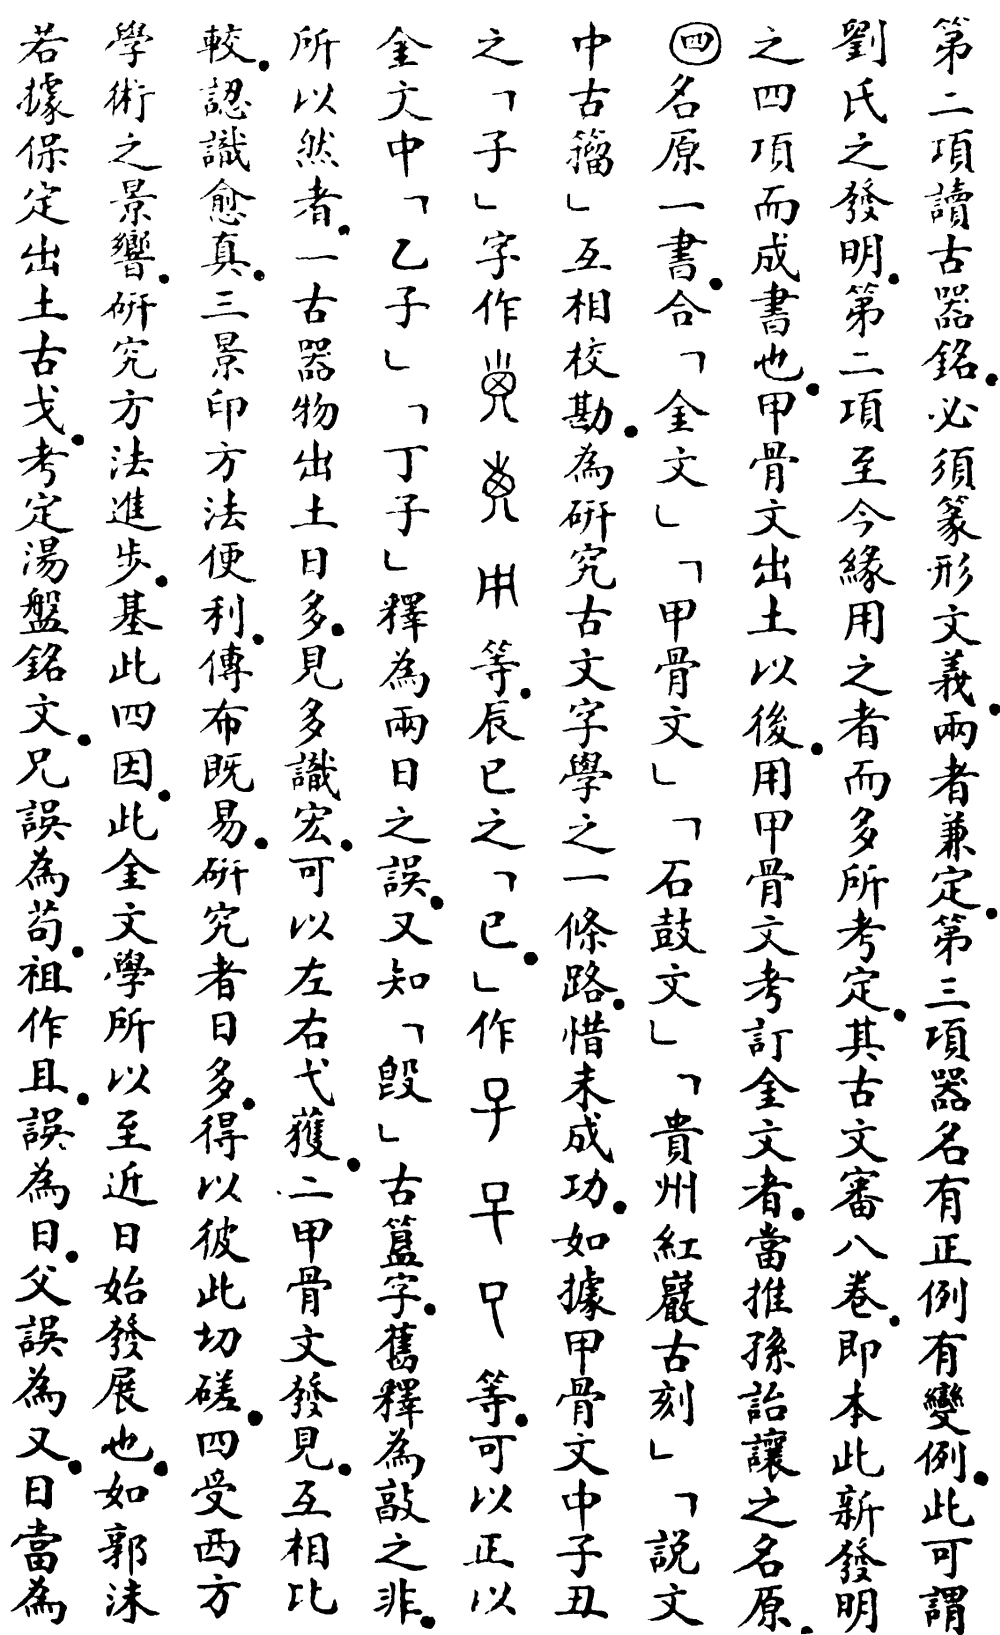 第二項讀古器銘．必須篆形文義．兩者兼定．第三項器名有正例有變例．此可謂
劉氏之發明．第二項至今緣用之者而多所考定．其古文審八卷．即本此新發明
之四項而成書也．甲骨文出土以後．用甲骨文考訂金文者．當推孫詒讓之名原．
㊃名原一書．合「金文」「甲骨文」「石鼓文」「貴州紅巖古刻」「説文
中古籀」互相校勘．為研究古文字學之一條路．惜未成功．如據甲骨文中子丑
之「子」字作 等．辰巳之「巳．」作 等．可以正以
金文中「乙子」「丁子」釋為兩日之誤．又知「𣪘」古簋字．舊釋為敲之非．
所以然者．一古器物出土日多．見多識宏．可以左右弋獲．二甲骨文發見．互相比
較．認識愈真．三景印方法便利．傳布既易．研究者日多．得以彼此切磋．四受西方
學術之景響．研究方法進步．基此四因．此金文學所以至近日始發展也．如郭沫
若據保定出土古戈．考定湯盤銘文．兄誤為苟．祖作且．誤為日．父誤為又．日當為